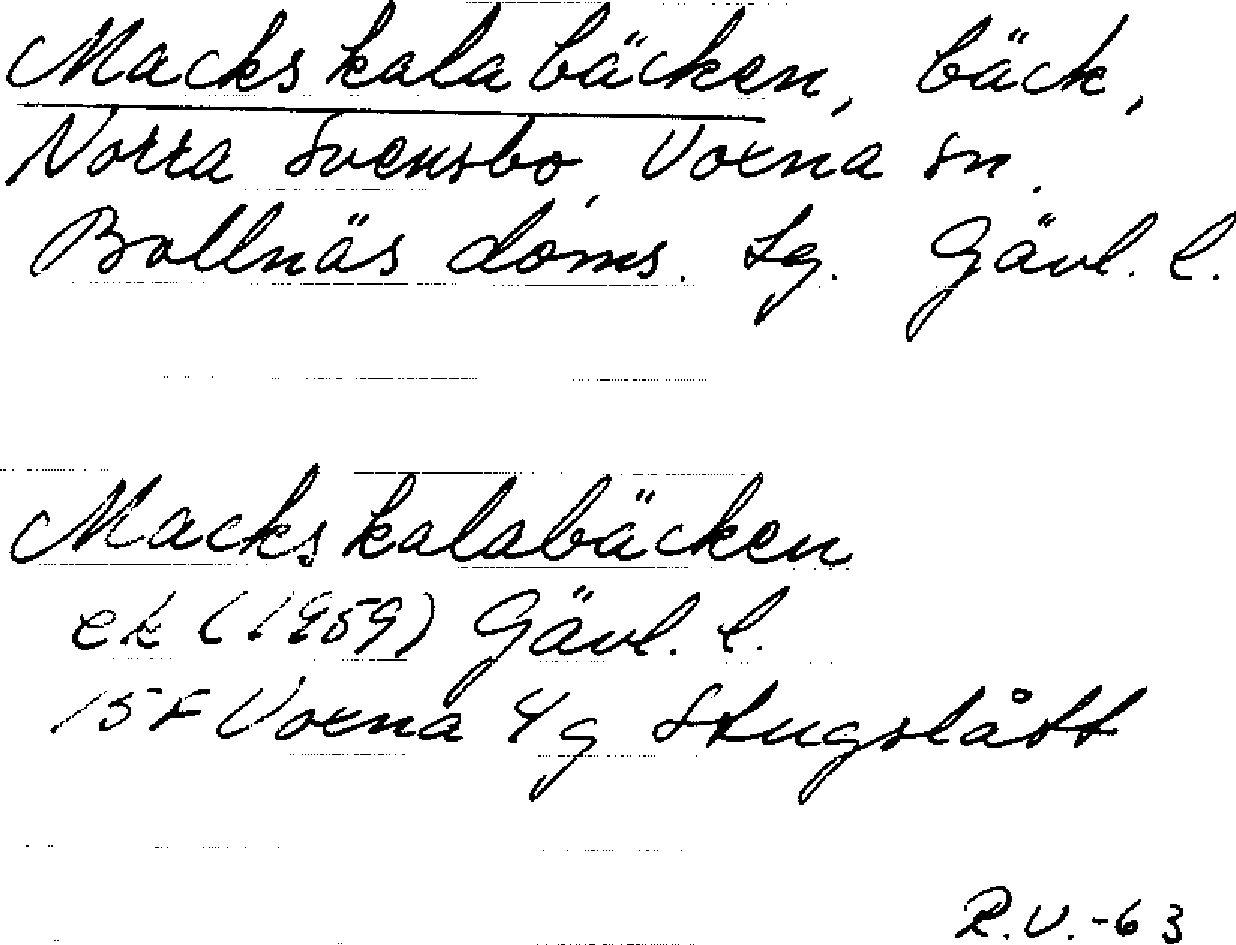 Mackskalabäcken, bäck,
Norra Svensbo, Voxna sn.
Bollnäs doms. Lg. Gävl. l.
Mackskalabäcken
ek (1959) Gävl. l.
15F Voxna 4g Stugslått
R.V.-63